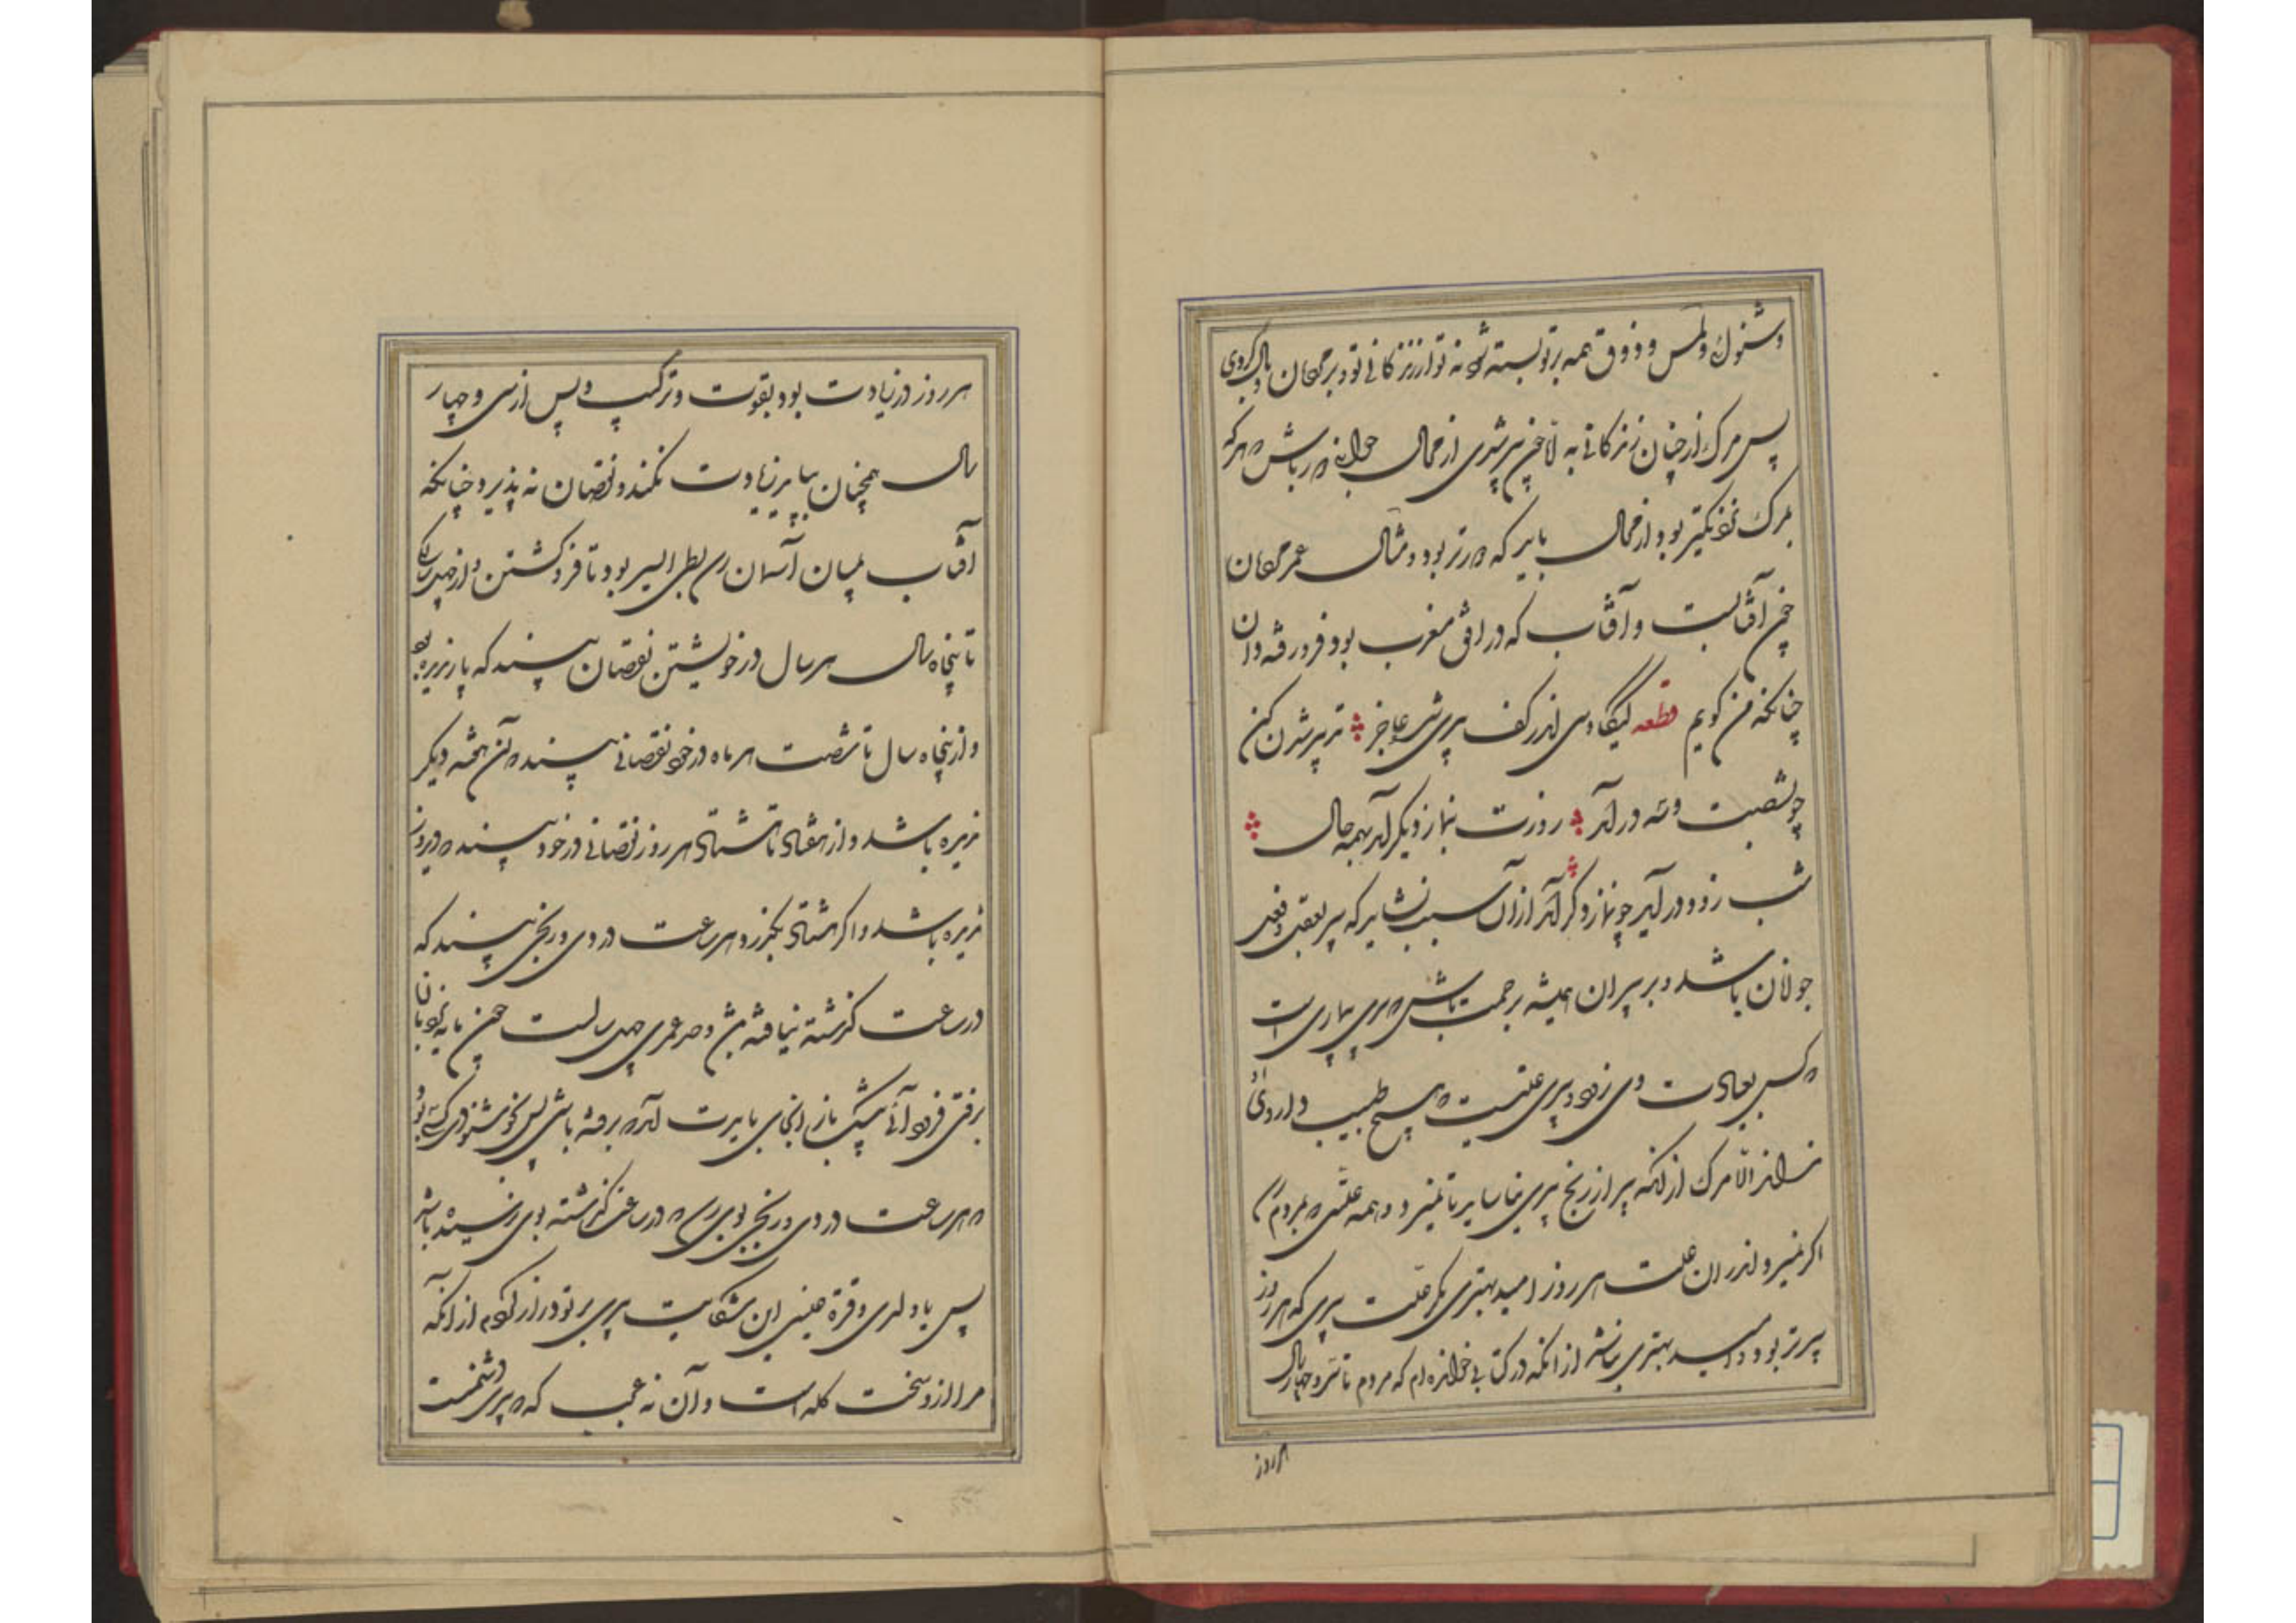 و شنوائی و لمس و ذوق همه بر تو بسته شود نه تو از زندگانی تو و بر مردمان وبال گردی
پس مرگ از چنان زندگانی به اما چون پیر شدی از محال جوانی دور باش که هر که
بمرگ نزدیکتر بود از محال باید که دورتر بود و مثال عمر مردمان
چون آفتابست و آفتاب که در افق مغرب بود فرو رفته دان
چنانکه من گویم قطعه کیکاوسی اندر کف پیری شده عاجز تدبیر شدن کن
چو شصت و سه درآمد روزت بنماز دیگر آمد بهمه حال
شب زود درآید چو نماز دگر آمد از آن سبب نشاید که پیر بعقل و فعل
جوانان باشد و بر پیران همیشه برحمت باش که پیری بیماری است
که کس بعیادت وی نرود و پیری علتیست که هیچ طبیب داروی آن
نداند الا مرگ از آنکه پیر از رنج پیری نیاساید تا نمیرد و همه علتی که بمردم رسد
اگر نمیرد اندر آن علت هر روز امید بهتری بود مگر علت پیری که هر روز
پیرتر بود و امید بهتری نباشد از آنکه در کتابی خوانده‌ام که مردم تا سی و چهار سال
هر روز
هر روز در زیادت بود بقوت و ترکیب و پس از سی و چهار
سال همچنان بپاید زیادت نکند و نقصان نپذیرد چنانکه
آفتاب میان آسمان رسد بطی السیر بود تا فروگشتن و از چهل سالگی
تا پنجاه سال هر سال در خویشتن نقصان بیند که پار ندیده بود
و از پنجاه سال تا شصت هر ماه در خود نقصانی بیند که آن هفته دیگر
ندیده باشد و از هفتاد تا هشتاد هر روز نقصانی در خود بیند که دی روز
ندیده باشد و اگر هشتاد بگذرد هر ساعت دردی و رنجی بیند که
در ساعت گذشته نیافته باشد و حد عمری چهل سالست چون پایه نردبان
برفتی فرود آئی بیشک باز از آنجای بایدت آمد که بر رفته باشی پس خوشنود کسی نبود
که هر ساعت دردی و رنجی بوی رسد که در ساعت گذشته بوی نرسیده باشد
پس یا ولدی و قرة عینی این شکایت پیری بر تو دراز کردم از آنکه
مرا از او سخت گله است و آن نه عجب که پیری دشمنست